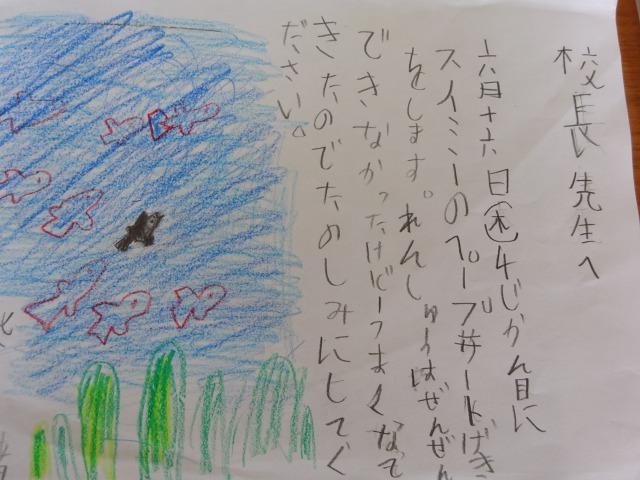 校長先生へ
六月十六日(木)4じかん目に
スイミーのペープサートげき
をします。れんしゅうはぜんぜん
できなかったけどうまくなって
きたのでたのしみにしてく
ださい。